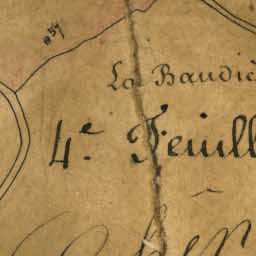 n° 54
La Baudiè
4.e Feuill